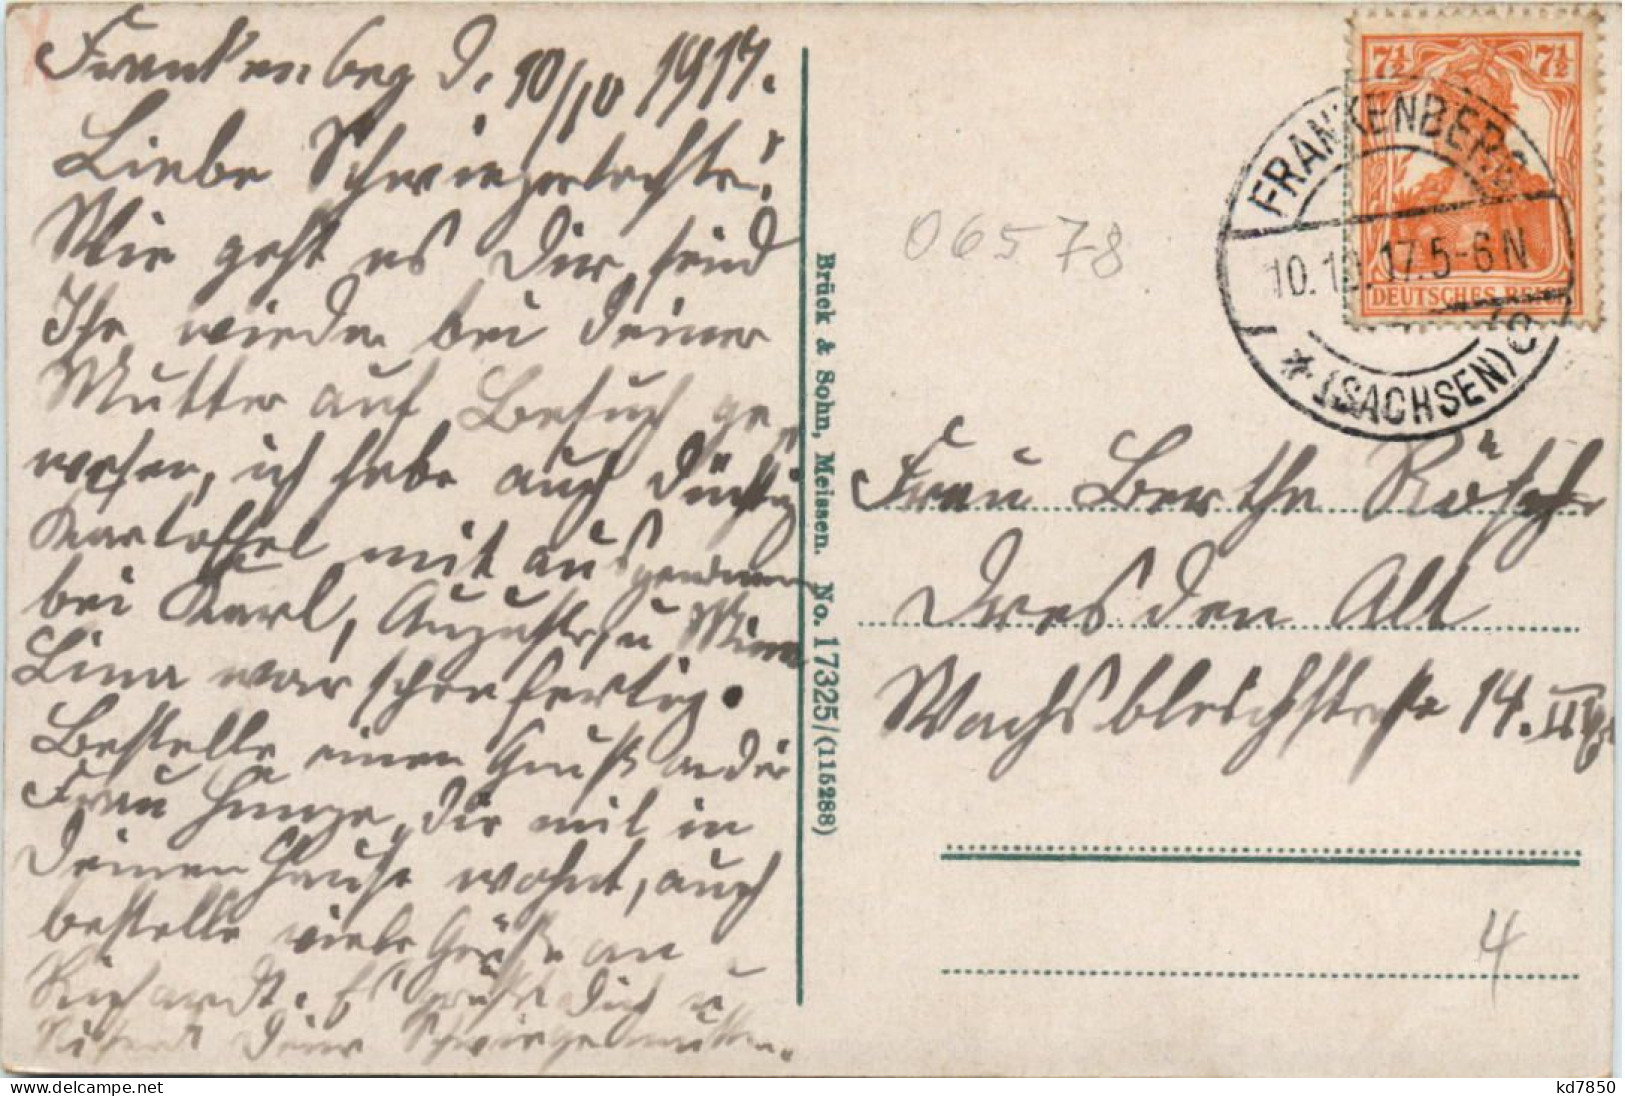 Frankenbeg d. 10/10 1917.
Liebe Schwiegertochter!
Wie geht es Dir, seid
Ihr wieder bei Deiner
Mutter auf Besuch ge„
wesen, ich habe auch düchtig
Kartoffel mit aus
bei Karl, Auguste, u Minna
Lina war schon fertig.
Bestelle einen Gruß an die
Frau Hunger, die mit in
Deinen Hause wohnt, auch
bestelle viele Grüße an
Richardt. Es grüßt Dich u
Deine Schwiegermutter.
Brück & Sohn, Meissen. No. 17325/(115288)
7½ 7½
DEUTSCHES REICH
FRANKENBERG
10.10.17.5-6N
* (SACHSEN) C
06578
Frau Berthe Rösch
Dresden Alt
Wachsbleichstraße 14. III
4
kd7850